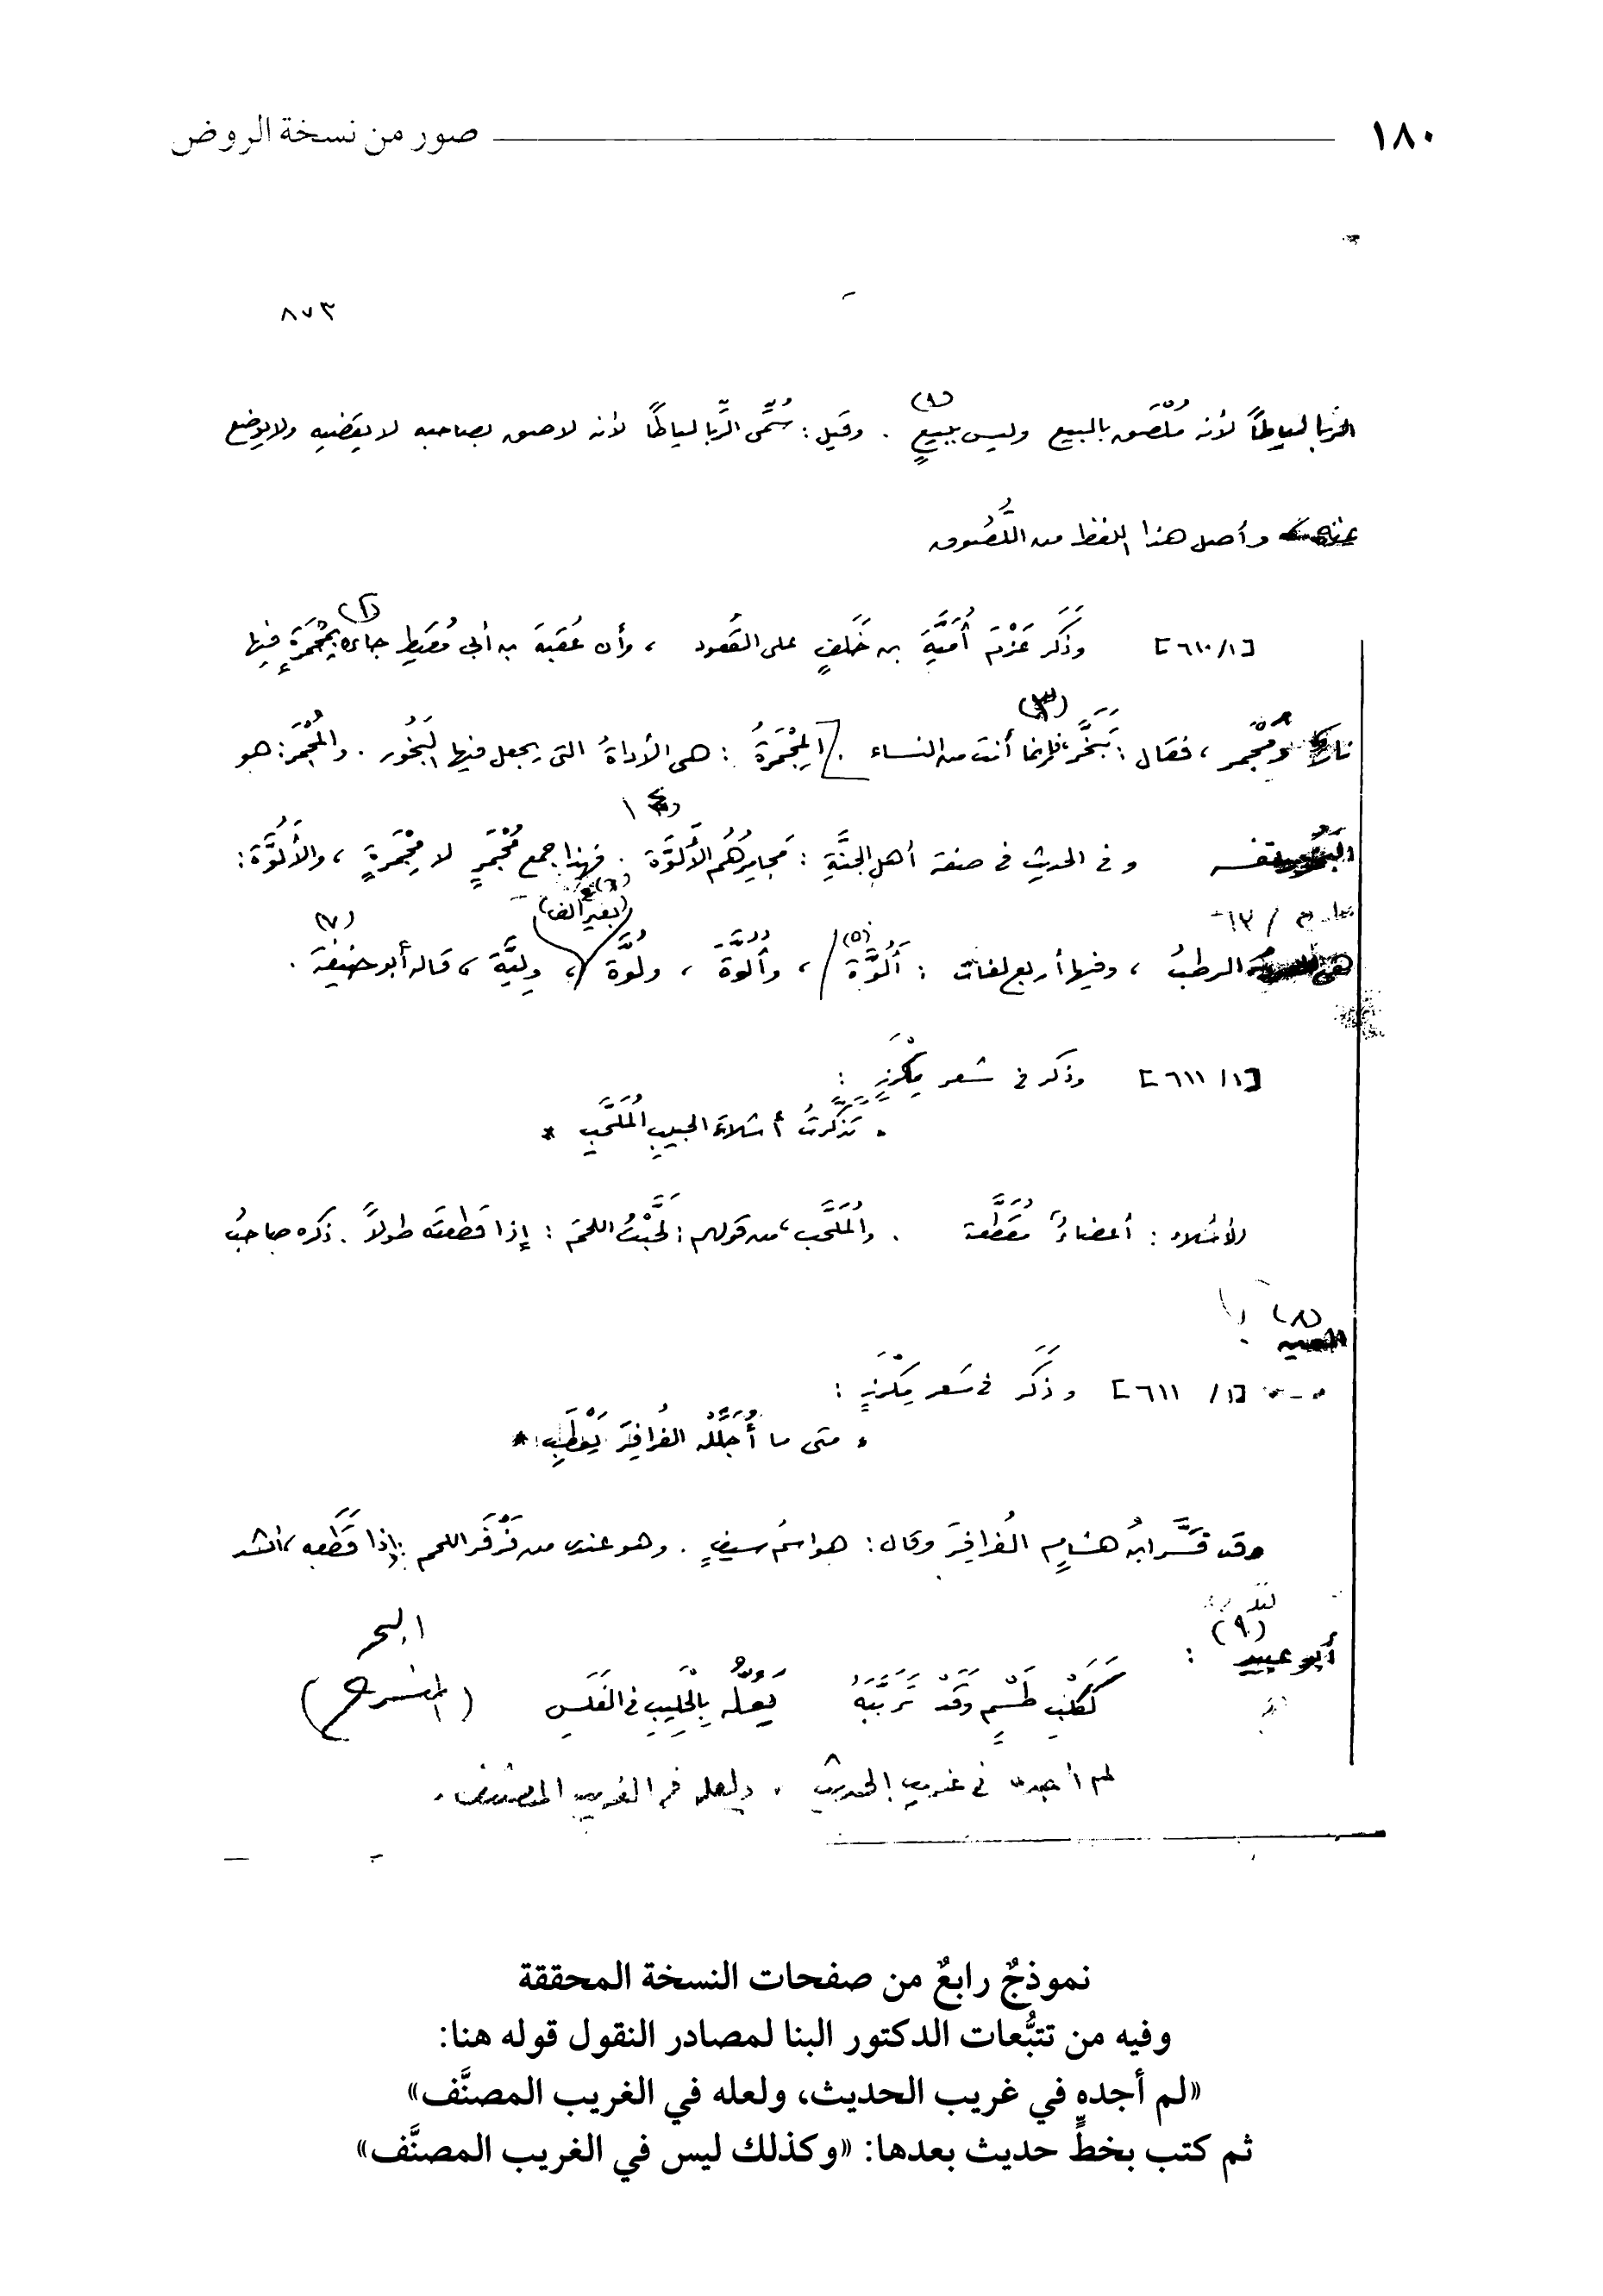 ١٨٠ صور من نسخة الروض
٨٧٣
الرِّبا لياطًا لأنه مُلْصَق بالبيع وليس ببيعٍ (١) . وقيل : سُمِّى الرِّبا لياطًا لأنه لاصق بصاحبه لا يقضيه ولا يوضع
عنه وأصل هذا اللفظ من اللُّصُوق
[٦١٠/١] وذَكَر عَزْمَ أُمَيَّةَ بن خَلَفٍ على القُعود ، وأن عُقبَةَ بن أبى مُعَيطٍ جاءه بِمِجْمَرَةٍ (٢) فيها
نار ومُجْمَر ، فقال : تَبَخَّر، فإنما أنت من النساء (٣) . [المِجْمَرَةُ : هى الأداةُ التى يجعل فيها البَخُور . والمُجْمَر : هو
البَخُور نفسه وفى الحديثِ فى صفة أهلِ الجنَّةِ : مَجامِرُهُم الأَلُوَّة . فهذا جمع مُجْمَرٍ لا مِجْمَرةٍ ، والأَلُوَّة :
(بغير ألف)
هى الرطبُ ، وفيها أربع لغات : أَلُوَّة (٥) ، وأُلُوَّة ، ولُوَّة ، ولِيَّة ، قاله أبو حنيفة (٧) .
[٦١١/١] وذكر فى شعر مِكْرَزٍ :
* تَذَكَّرتُ أشلاءَ الحبيبِ المُلَحَّبِ *
الأشلاء : أعضاءٌ مُقَطَّعة . والمُلَحَّب، من قولهم : لَحَّبْتُ اللحمَ : إذا قَطعتَه طولاً . ذكره صاحبُ
العين (٨)
[٦١١/١] وذَكَر فى شعر مِكْرَزٍ :
* متى ما أُجَلِّلْه الفُرافِرَ يَعْطَبِ *
وقد فَسَّر ابنُ هشامٍ الفُرافِرَ وقال : هو اسمُ سيفٍ . وهو عندى من فَرْفَر اللحم : إذا قَطَّعه ، أنشد
أبو عبيد (٩) :
البحر
كَكَلْبِ طَسْمٍ وَقَدْ تَرَبَّبَهُ يَعُلُّهُ بِالحَلِيبِ فى الغَلَسِ (المنسرح)
لم أجده فى غريب الحديث ، ولعله فى الغريب المصنف .
نموذجٌ رابعٌ من صفحات النسخة المحققة
وفيه من تتبُّعات الدكتور البنا لمصادر النقول قوله هنا:
«لم أجده في غريب الحديث، ولعله في الغريب المصنَّف»
ثم كتب بخطٍّ حديث بعدها: «وكذلك ليس في الغريب المصنَّف»